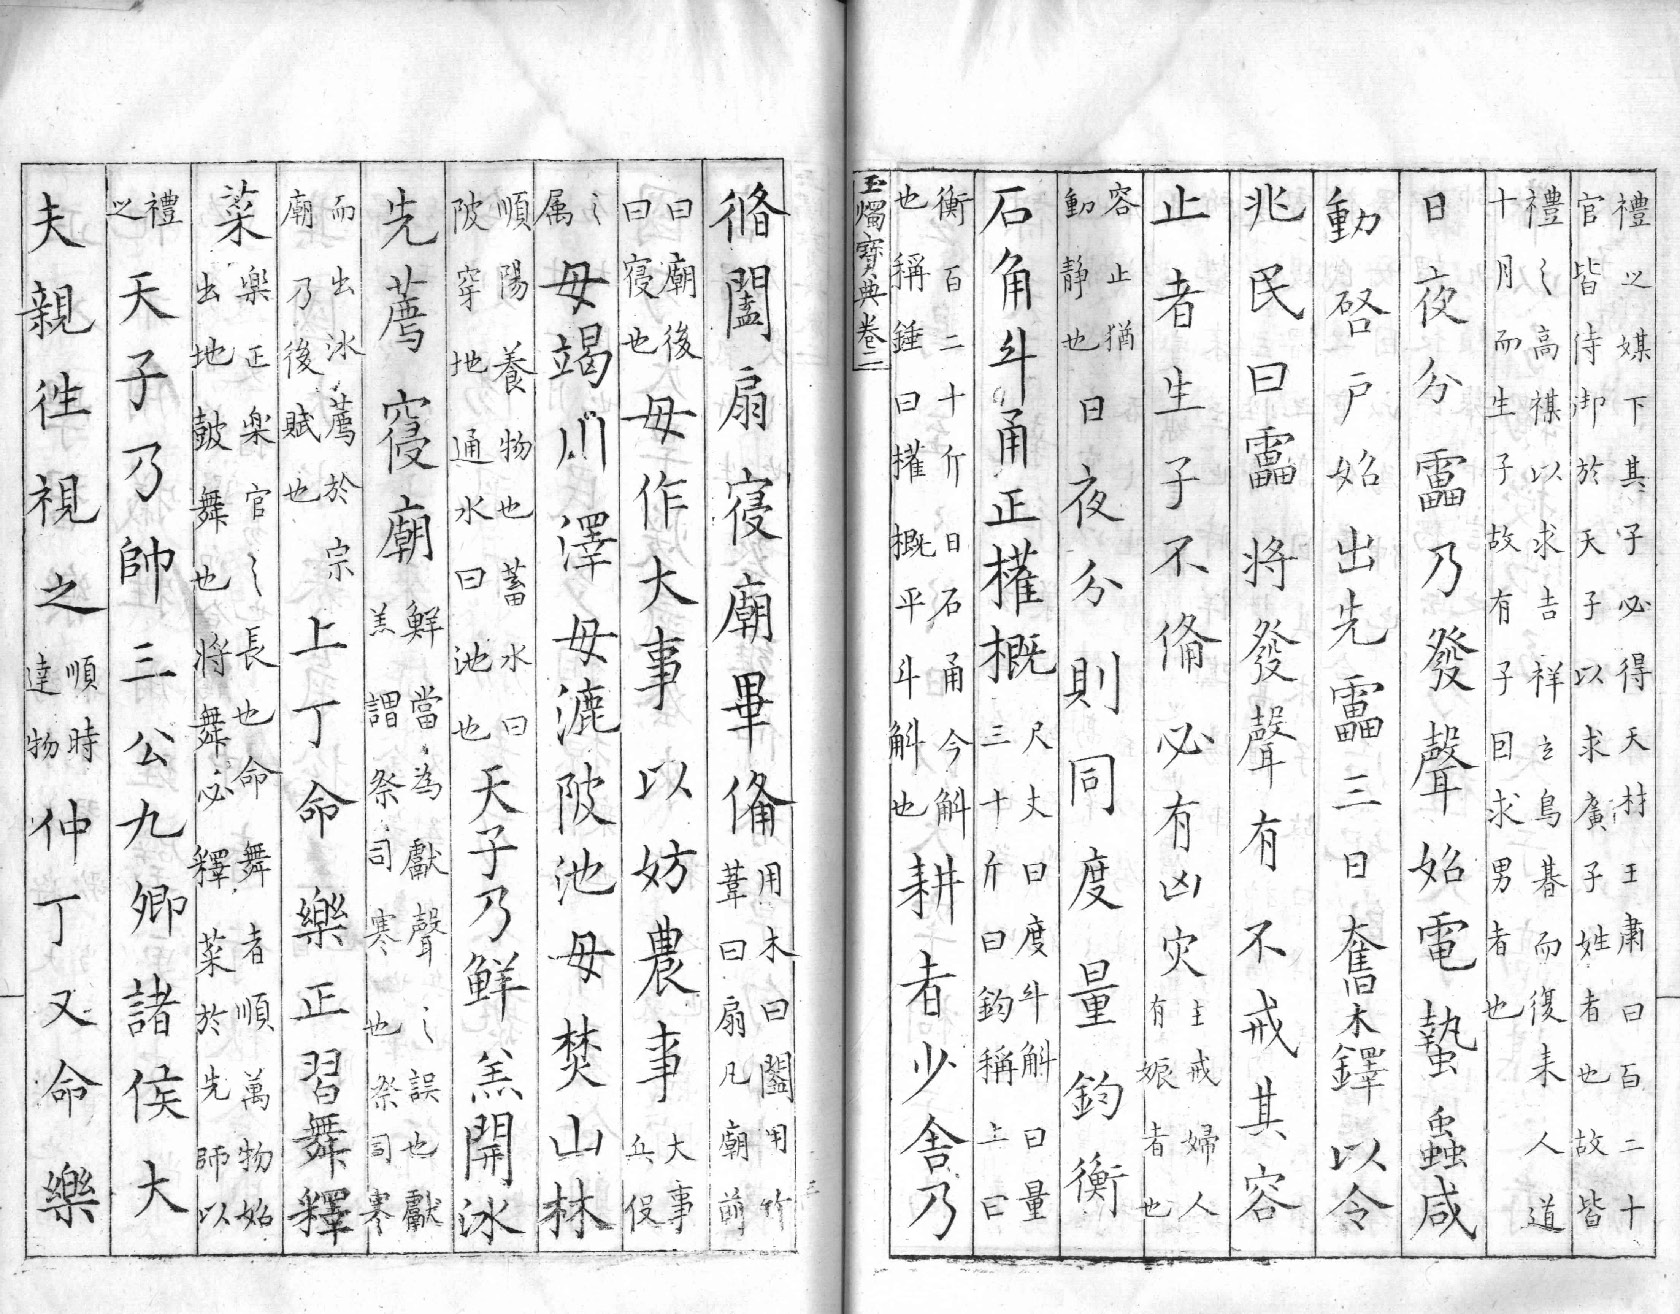 禮之媒下其子必得天材王肅曰百二十
官皆侍御於天子以求廣子姓者也故皆
禮〻高禖以求吉祥玄鳥碁而復耒人道
十月而生子故有子囙求男者也
日夜分靁乃發聲始電蟄蟲咸
動啓户始出先靁三日奮木鐸以令
兆民曰靁将發聲有不戒其容
止者生子不俻必有凶灾主戒婦人
有娠者也
容止猶
動静也日夜分則同度量鈞衡
石角斗甬正權概尺丈曰度斗斛曰量
三十斤曰鈞稱上曰
衡百二十斤曰石甬今斛
也稱錘曰權概平斗斛也耕者少舍乃
玉燭寶典卷二
脩闔扇寝廟畢俻用木曰闔用竹
葦曰扇凡廟前
曰廟後
曰寝也毋作大事以妨農事大事
兵役
〻
属毋竭川澤毋漉陂池毋焚山林
順陽養物也蓄水曰
陂穿地通水曰池也天子乃鮮羔開冰
先薦寝廟鮮當為獻聲〻誤也獻
羔謂祭司寒也祭司寒
而出冰薦於宗
廟乃後賦也上丁命樂正習舞釋
菜楽正楽官〻長也命舞者順萬物始
出地鼓舞也将舞必釋菜於先師以
禮
之天子乃帥三公九卿諸侯大
夫親徃視之順時
達物仲丁又命樂